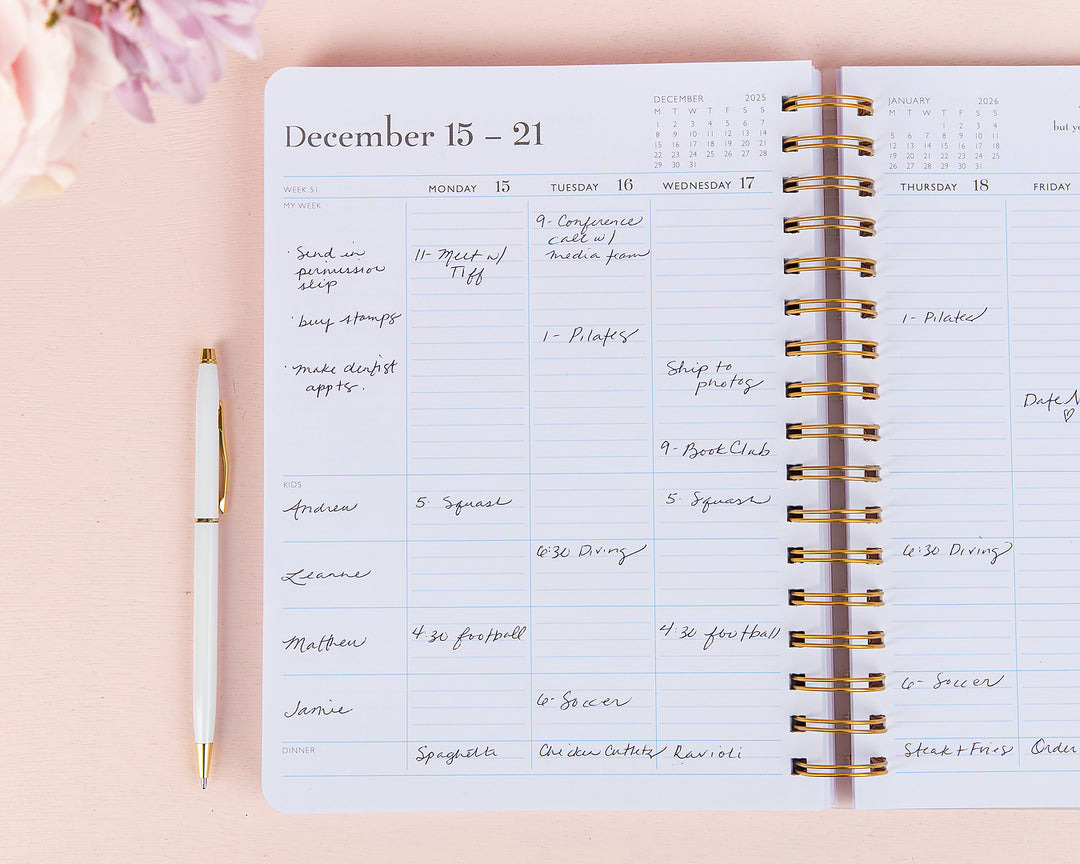 DECEMBER 2025
M T W T F S S
1 2 3 4 5 6 7
8 9 10 11 12 13 14
15 16 17 18 19 20 21
22 23 24 25 26 27 28
29 30 31
JANUARY 2026
M T W T F S S
1 2 3 4
5 6 7 8 9 10 11
12 13 14 15 16 17 18
19 20 21 22 23 24 25
26 27 28 29 30 31
but yo
December 15 – 21
WEEK 51
MONDAY 15
TUESDAY 16
WEDNESDAY 17
THURSDAY 18
FRIDAY
MY WEEK
· Send in
permission
slip
· buy stamps
· make dentist
appts.
11- Meet w/
Tiff
9- Conference
call w/
media team
1- Pilates
Ship to
photog
9- Book Club
1- Pilates
Date N
♡
KIDS
Andrew
5· Squash
5· Squash
Leanne
6:30 Diving
6:30 Diving
Matthew
4:30 football
4:30 football
Jamie
6- Soccer
6- Soccer
DINNER
Spaghetti
Chicken Cutlets
Ravioli
Steak + Fries
Order